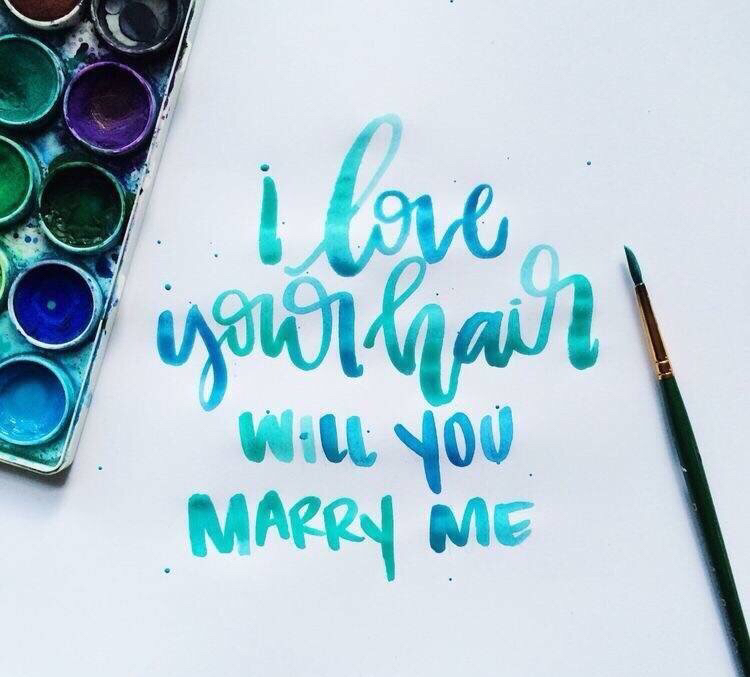 i love
your hair
WILL YOU
MARRY ME